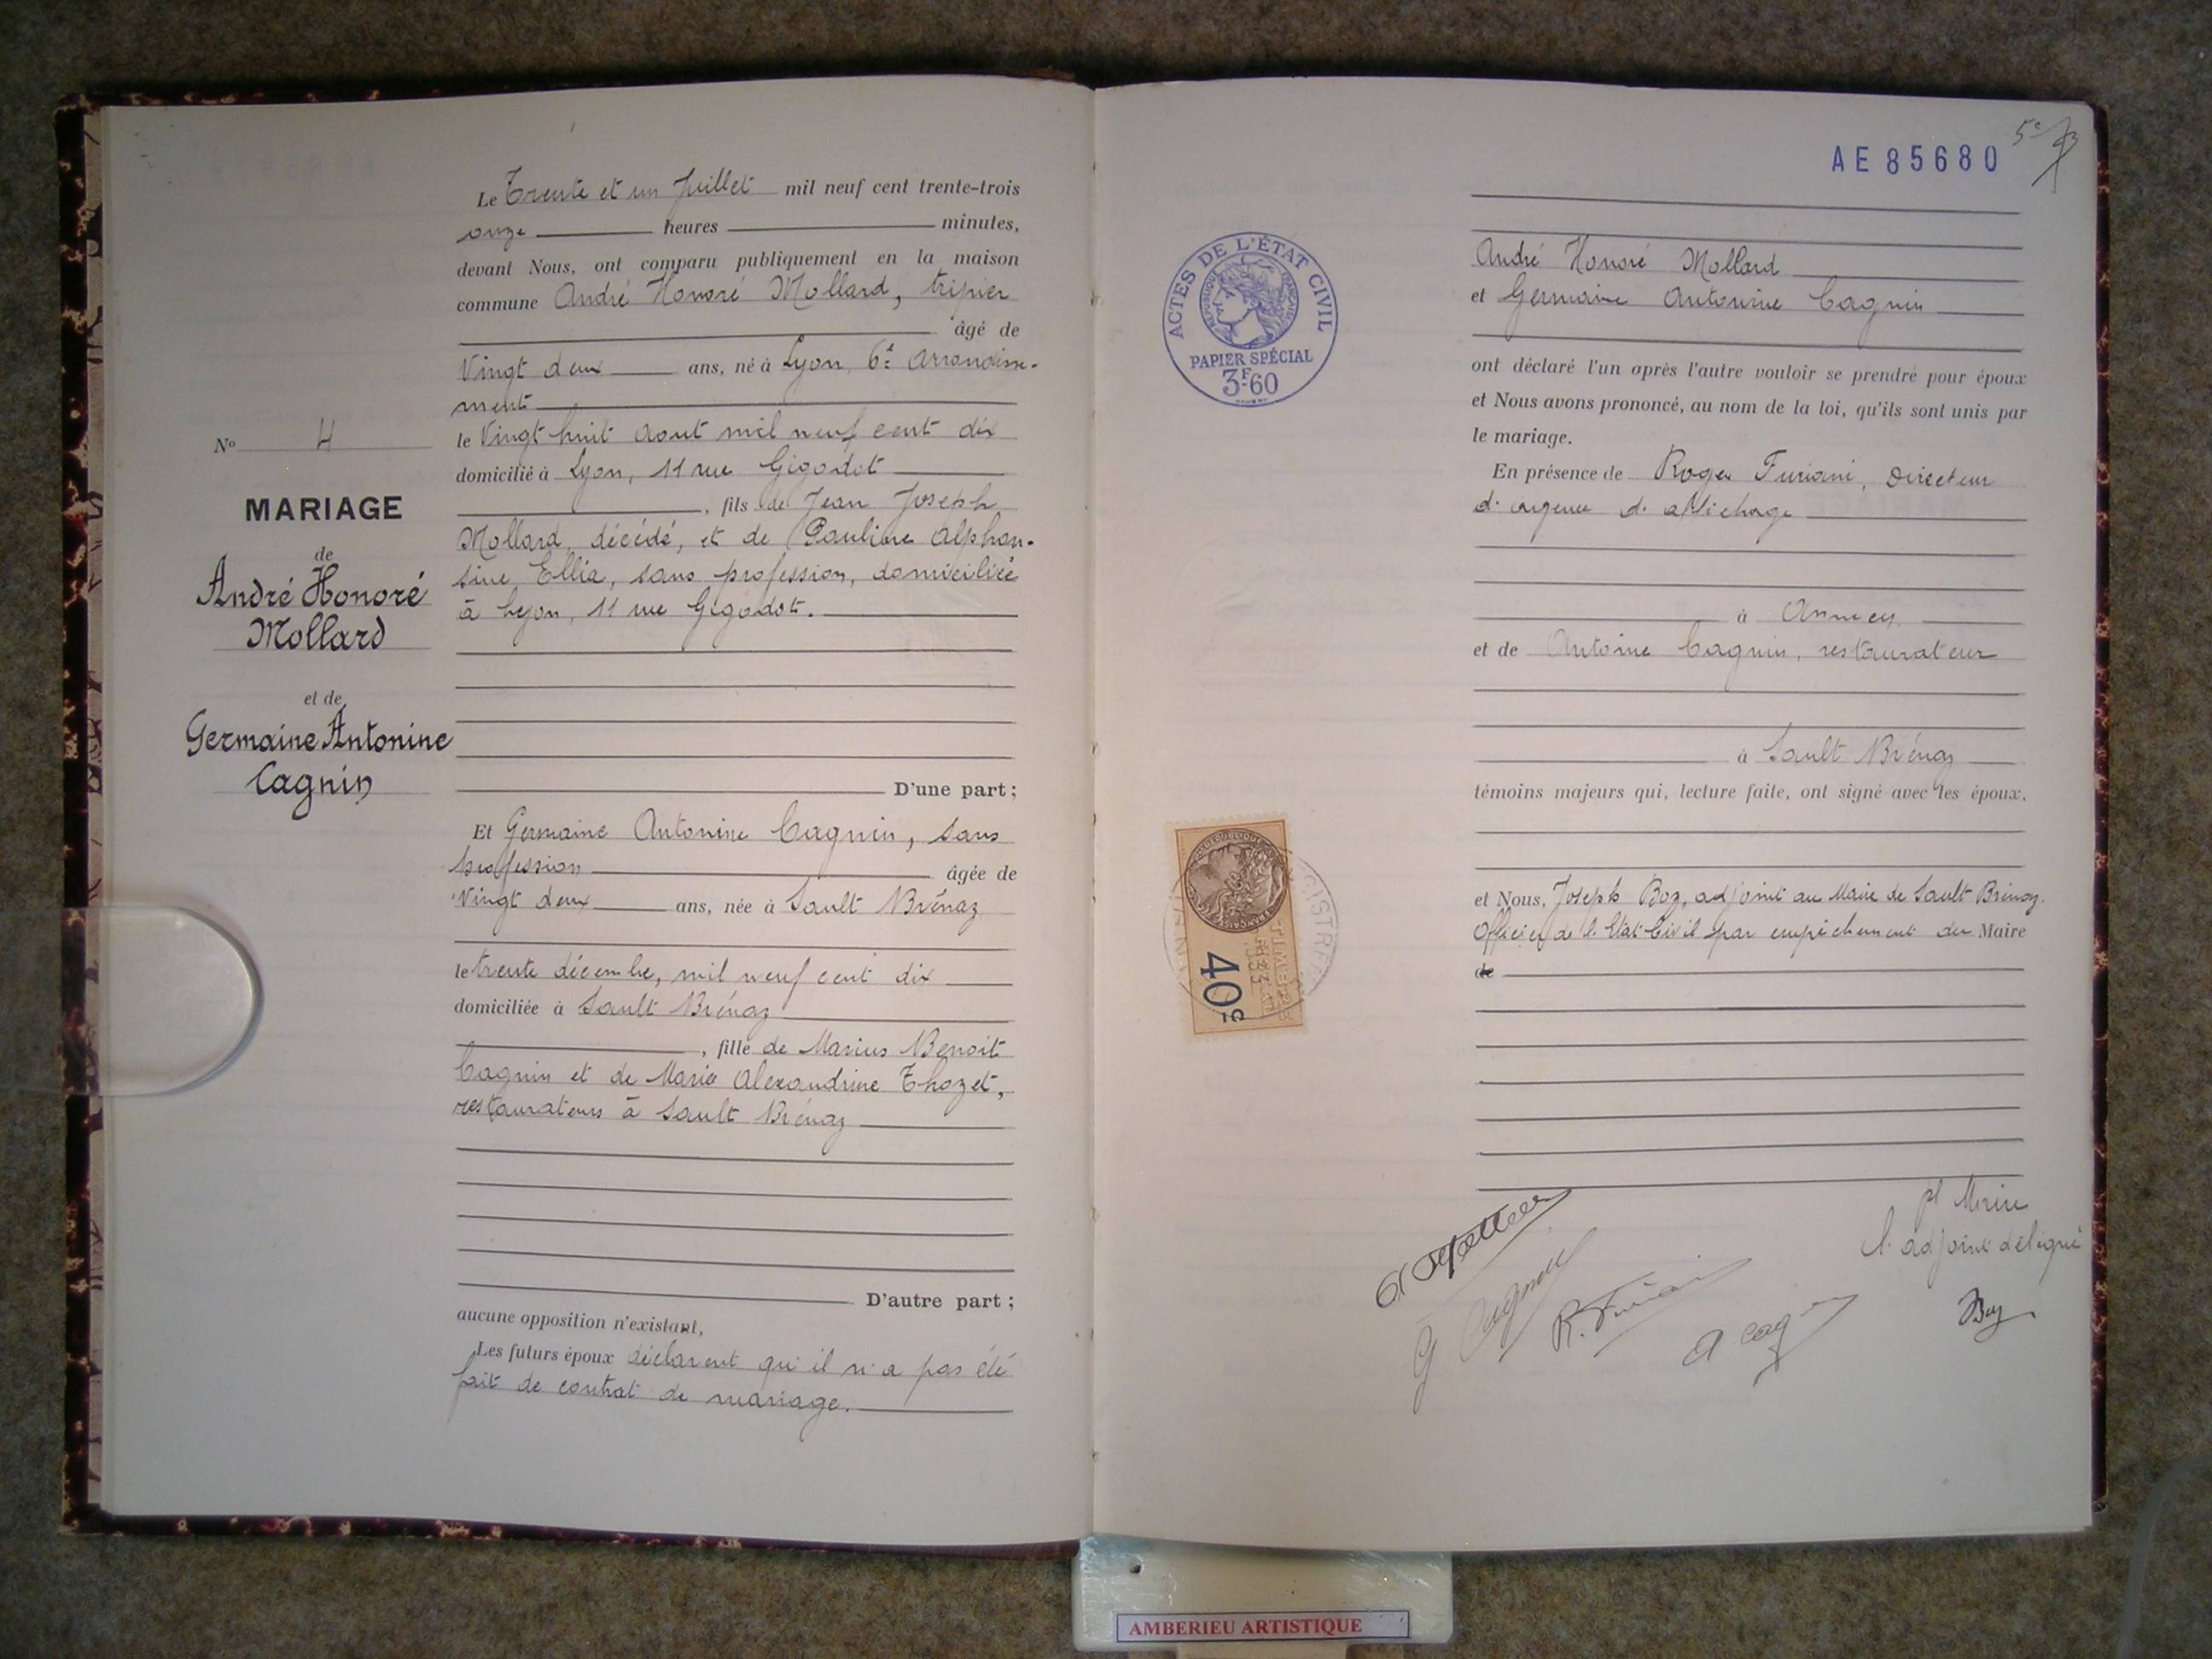 Le Trente et un Juillet mil neuf cent trente-trois
onze heures minutes,
devant Nous, ont comparu publiquement en la maison
commune André Honoré Mollard, tripier
âgé de
Vingt deux ans, né à Lyon, 6e Arrondisse-
ment
le Vingt huit Aout mil neuf cent dix
domicilié à Lyon, 11 rue Gigodot
, fils de Jean Joseph
Mollard, décédé, et de Pauline Alphon-
sine Ellia, sans profession, domiciliée
à Lyon, 11 rue Gigodot.
D'une part ;
Et Germaine Antonine Cagnin, sans
profession âgée de
Vingt deux ans, née à Sault Brénaz
le trente décembre, mil neuf cent dix
domiciliée à Sault Brénaz
, fille de Marius Benoit
Cagnin et de Marie Alexandrine Thozet,
restaurateurs à Sault Brénaz
D'autre part ;
aucune opposition n'existant,
Les futurs époux déclarent qu'il n'a pas été
fait de contrat de mariage.
No 4
MARIAGE
de
André Honoré
Mollard
et de
Germaine Antonine
Cagnin
AE 85680
ACTES DE L'ÉTAT CIVIL
RÉPUBLIQUE FRANÇAISE
PAPIER SPÉCIAL
3F60
André Honoré Mollard
et Germaine Antonine Cagnin
ont déclaré l'un après l'autre vouloir se prendre pour époux
et Nous avons prononcé, au nom de la loi, qu'ils sont unis par
le mariage.
En présence de Roger Furiani, Directeur
d'agence d'affichage
à Annecy
et de Antoine Cagnin, restaurateur
à Sault Brénaz
témoins majeurs qui, lecture faite, ont signé avec les époux,
et Nous, Joseph Boz, adjoint au Maire de Sault Brénaz.
Officier de l'Etat Civil par empêchement du Maire
de
40c
pr Maire
l'adjoint délégué
G Cagnin
AMBERIEU ARTISTIQUE